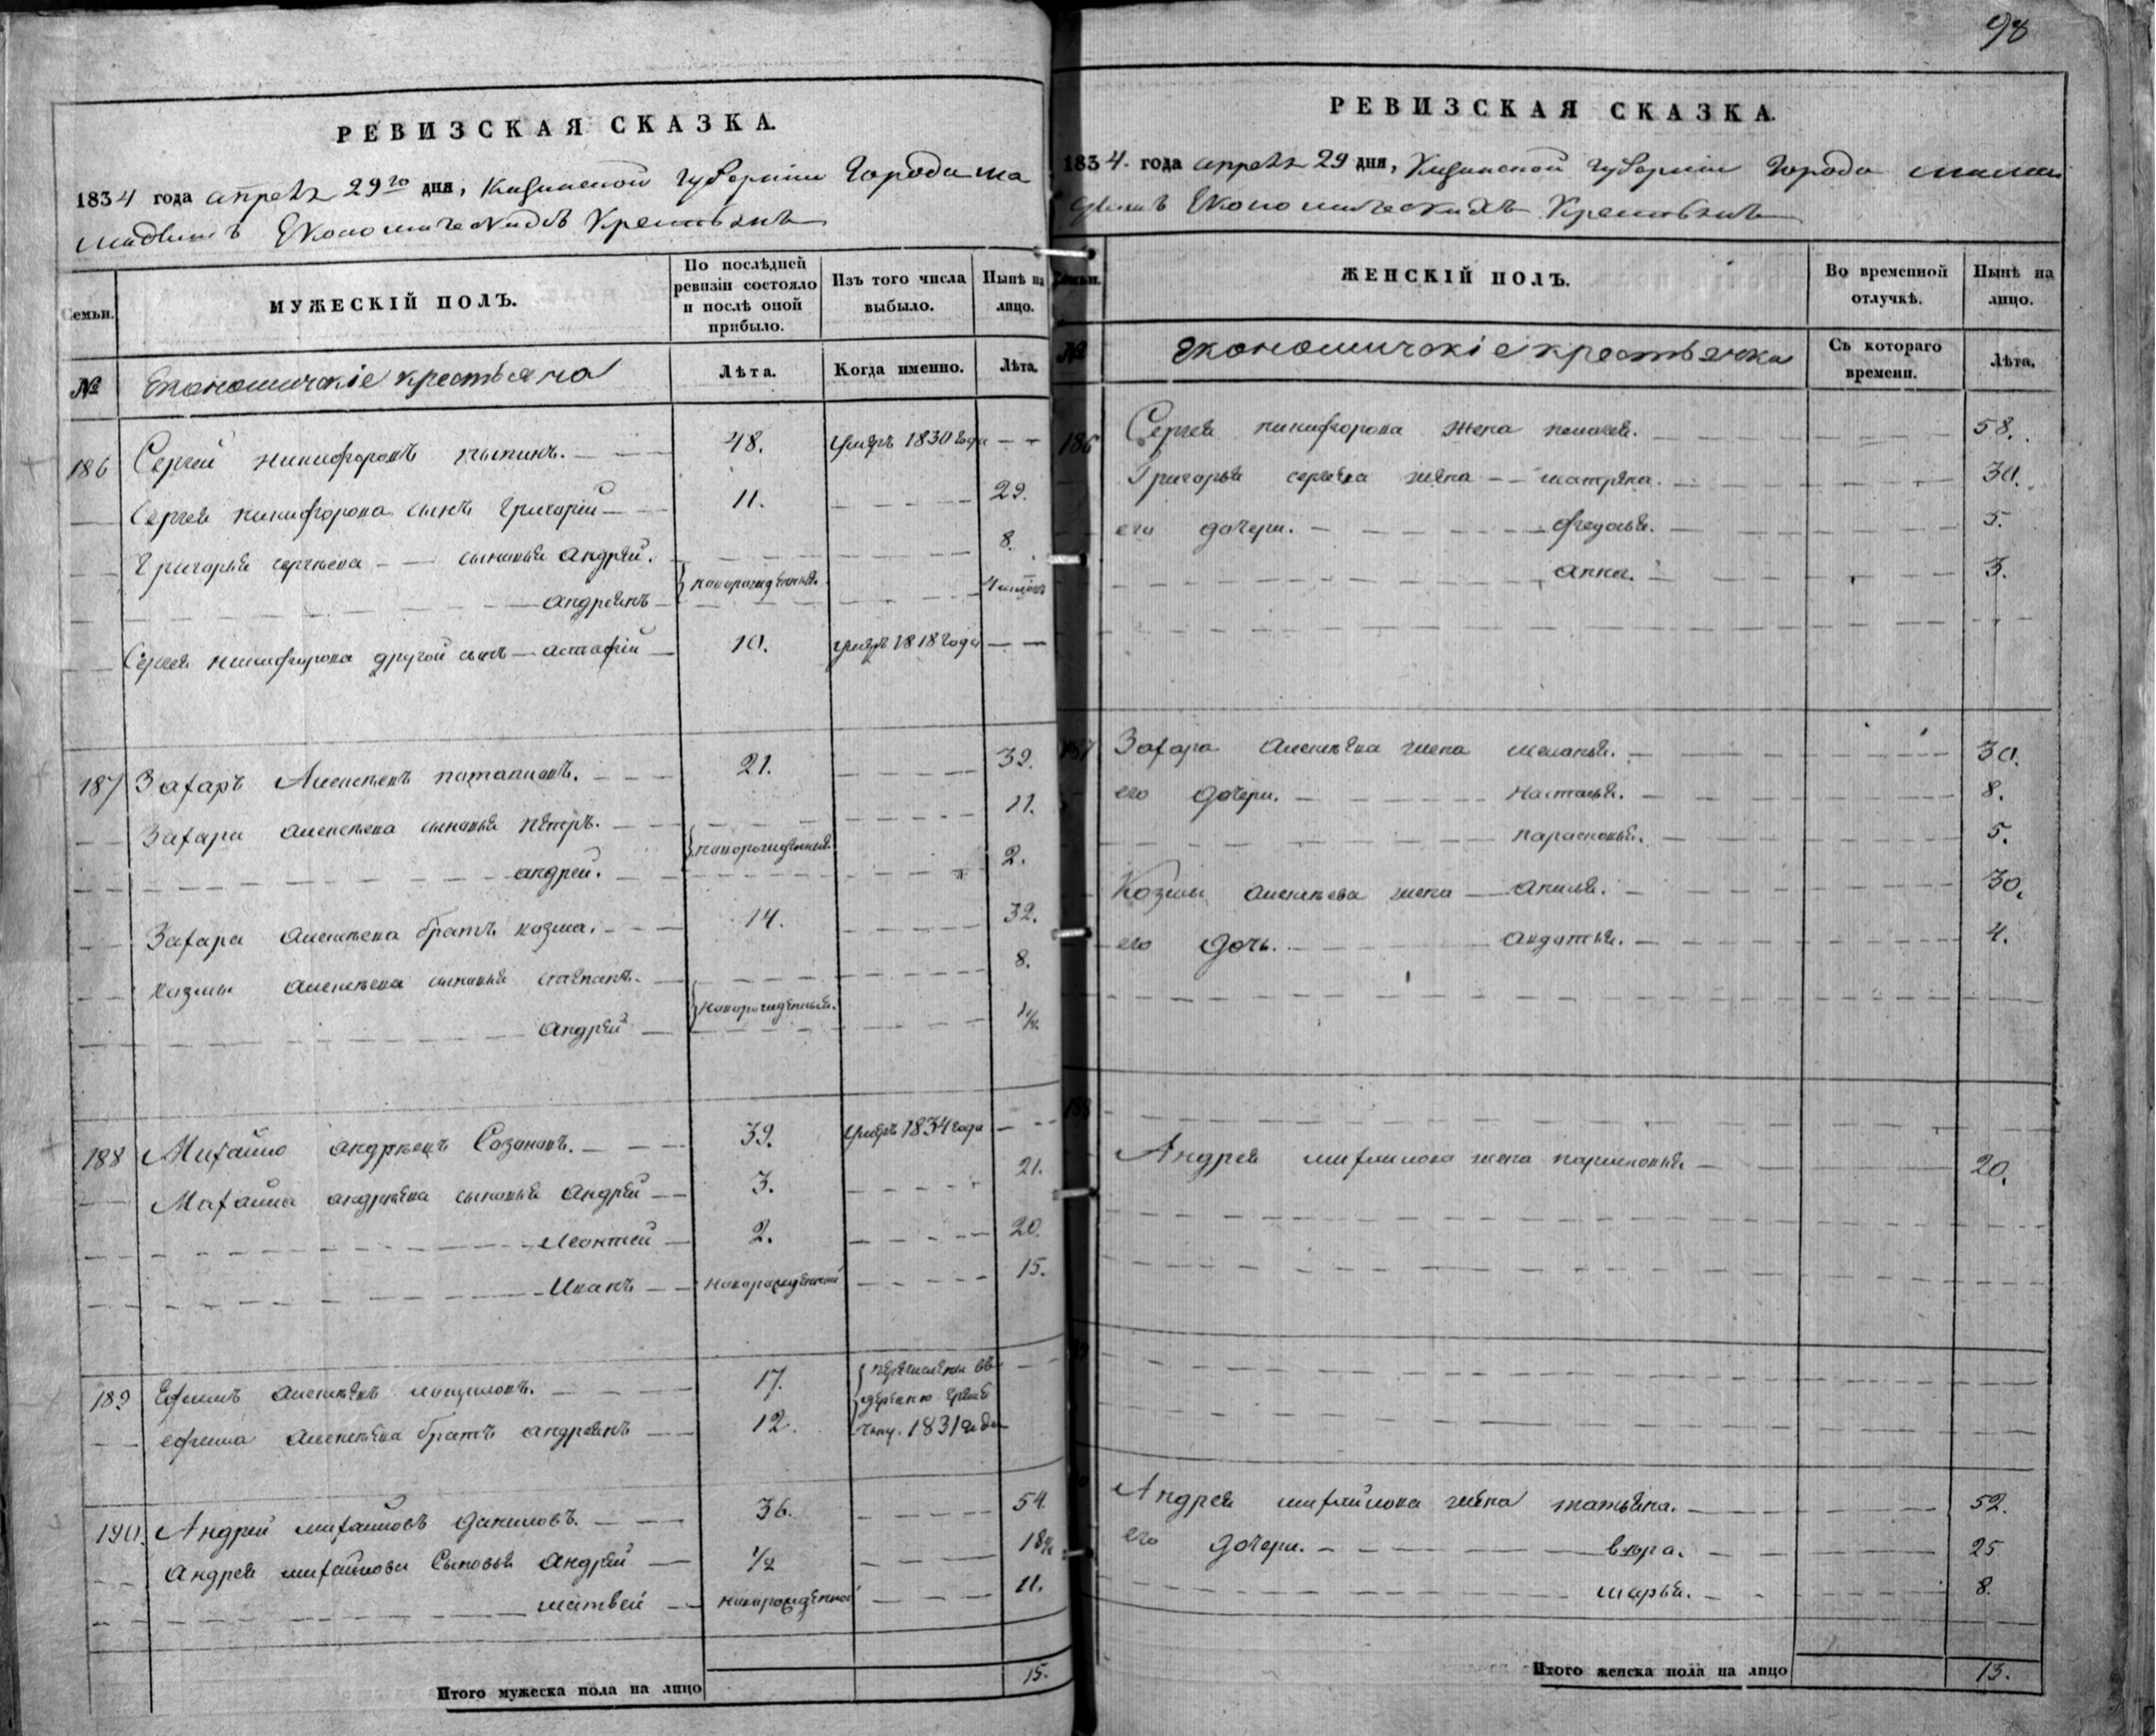 98
РЕВИЗСКАЯ СКАЗКА.
1834 года апреля 29го дня, Казанской Губернии Города ма
мадыша Економическихъ Крестьянъ
Семьи.
МУЖЕСКІЙ ПОЛЪ.
По послѣдней ревизіи состояло и послѣ оной прибыло.
Изъ того числа выбыло.
Нынѣ на лицо.
№
Економическіе крестьяна
Лѣта.
Когда именно.
Лѣта.
186 Сергей никифоровъ 48. умеръ 1830 года
Сергея никифорова сынъ Григорій 11. 29.
Григорья сергѣева сыновья Андрей. 8.
андреянъ новорожденныя 4
Сергея никифорова другой сынъ астафій 10. умеръ 1818 года
187 Захаръ Алексѣевъ потаповъ. 21. 39.
Захара алексѣева сыновья петръ. 11.
андрей. новорожденныя 2.
Захара алексѣева братъ козма. 14. 32.
Козмы алексѣева сыновья степанъ. 8.
Андрей новорожденныя. 1/2
188 Михайло андрѣевъ Созоновъ. 39. умеръ 1834 года
Михаила андрѣева сыновья андрей 3. 21.
Леонтей 2. 20.
Иванъ новорожденный 15.
189 Ефимъ алексѣевъ 17. перечислены въ
ефима алексѣева братъ андреянъ 12. деревню 1831 года
190. Андрей михайловъ даниловъ. 36. 54.
Андрея михайлова Сыновья андрей 1/2 18 1/2
матвей новорожденной 11.
Итого мужеска пола на лицо 15.
РЕВИЗСКАЯ СКАЗКА.
1834. года апреля 29 дня, Казанской Губернии Города мама
дыша Економическихъ Крестьянъ
Семьи.
ЖЕНСКІЙ ПОЛЪ.
Во временной отлучкѣ.
Нынѣ на лицо.
№
Економическіе крестьянки
Съ котораго времени.
Лѣта.
186 Сергея никифорова жена пелагея. 58.
Григорья сергеева жена матрена. 30.
его дочери. федосья. 5.
анна. 3.
187 Захара алексѣева жена меланья. 30.
его дочери. настасья. 8.
парасковья. 5.
Козмы алексѣева жена акилина. 30.
его дочь. авдотья. 4.
188
Андрея михайлова жена парасковья 20.
Андрея михайлова жена татьяна. 52.
его дочери. вѣра. 25
марья. 8.
Итого женска пола на лицо 13.